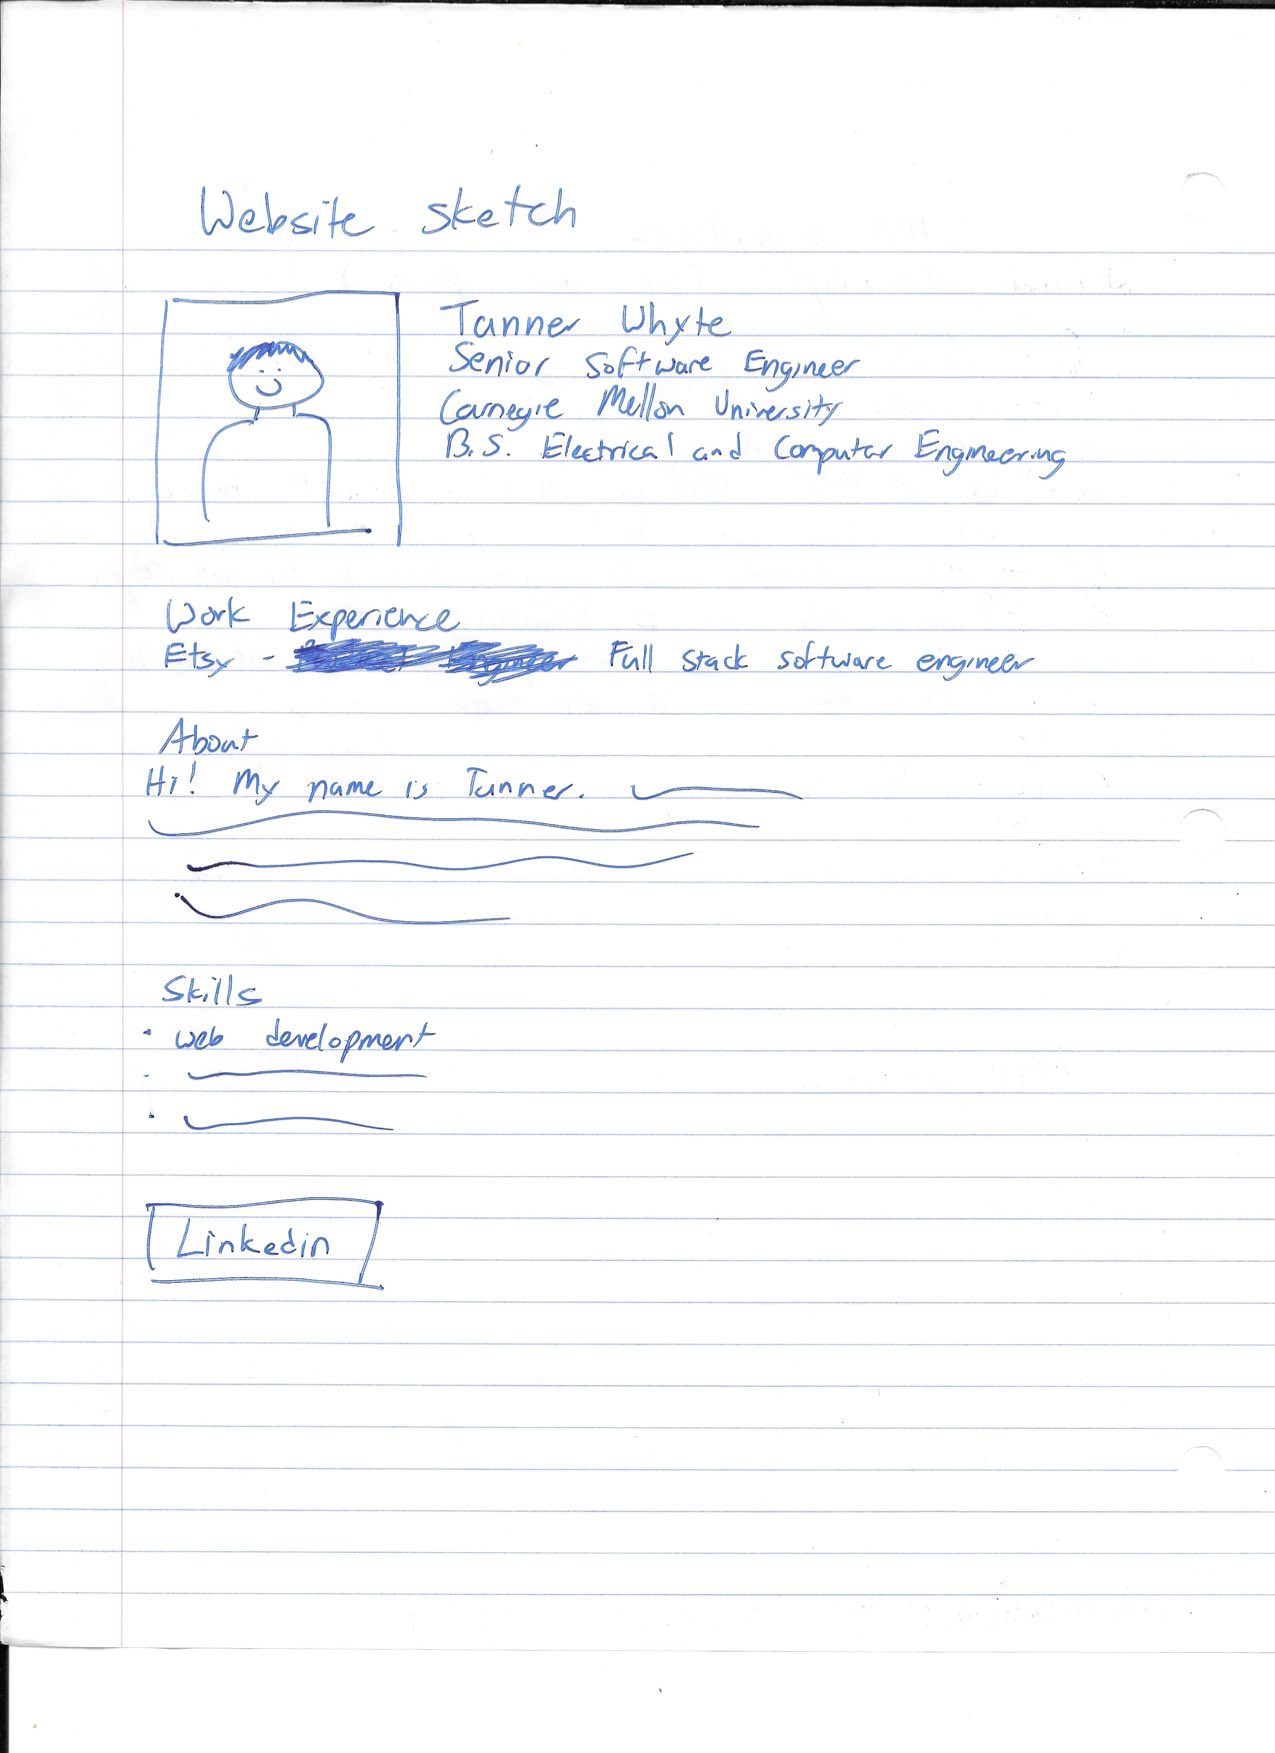 Website sketch
Tanner Whyte
Senior Software Engineer
Carnegie Mellon University
B.S. Electrical and Computer Engineering
Work Experience
Etsy - Full stack software engineer
About
Hi! My name is Tanner.
Skills
• web development
Linkedin